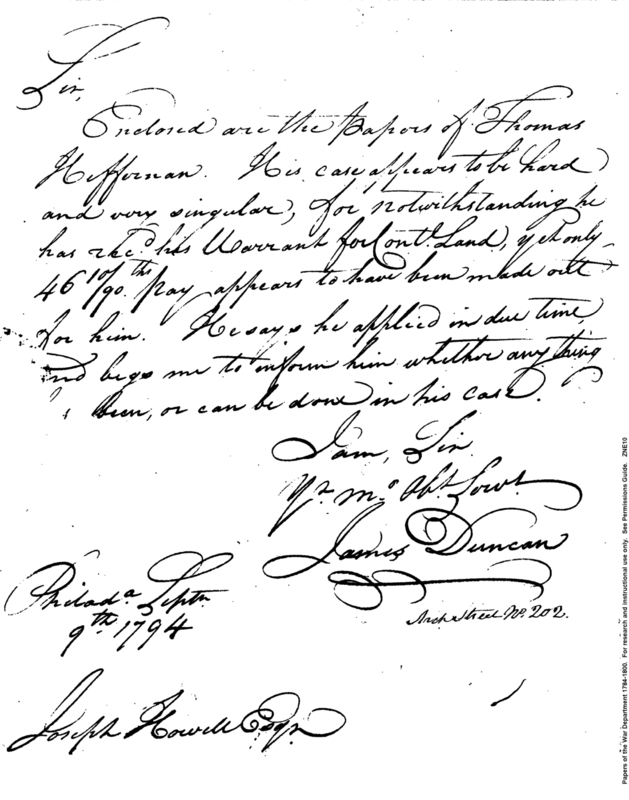 Sir,
Enclosed are the Papers of Thomas
Heffernan. His case appears to be hard
and very singular, for notwithstanding he
has recd his Warrant for Contl Land, yet only
46 10/90ths pay appears to have been made out
for him. He says he applied in due time
and begs me to inform him whether anything
been, or can be done in his case.
I am, Sir
Yr mo Obt Servt
James Duncan
Arch Street No. 202.
Philada Septr
9th 1794
Joseph Howell Esqr
Papers of the War Department 1784-1800. For research and instructional use only. See Permissions Guide. ZNE10